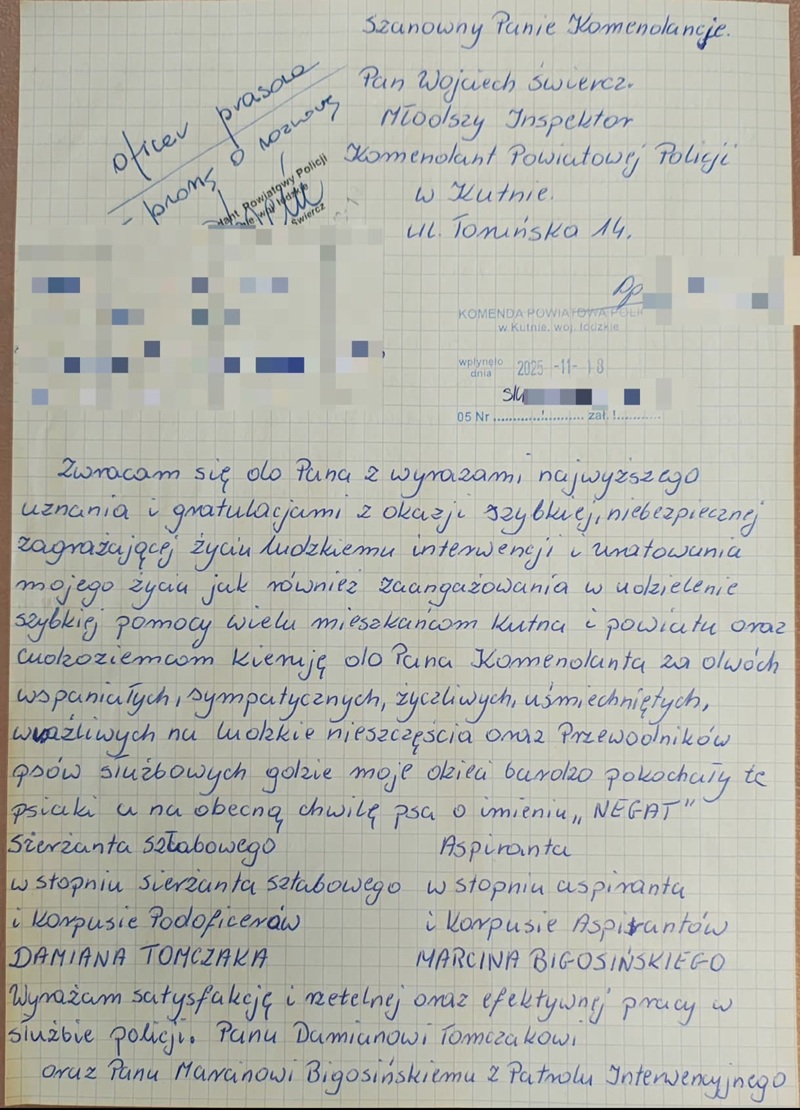 Szanowny Panie Komendancje.
Pan Wojciech Świercz.
Młodszy Inspektor
Komendant Powiatowej Policji
w Kutnie.
ul. Toruńska 14.
oficer prasowa
- proszę o rozmowę
Powiatowy Policji
woj. łódzkie
Świercz
KOMENDA POWIATOWA POLIC
w Kutnie, woj. łódzkie
wpłynęło
dnia 2025 -11- 18
05 Nr zał.
Zwracam się do Pana z wyrazami najwyższego
uznania i gratulacjami z okazji szybkiej, niebezpiecznej
zagrażającej życiu ludzkiemu interwencji i uratowania
mojego życia jak również zaangażowania w udzielenie
szybkiej pomocy wielu mieszkańcom Kutna i powiatu oraz
cudzoziemcom kieruję do Pana Komendanta za dwóch
wspaniałych, sympatycznych, życzliwych, uśmiechniętych,
wrażliwych na ludzkie nieszczęścia oraz Przewodników
psów służbowych gdzie moje dzieci bardzo pokochały te
psiaki a na obecną chwilę psa o imieniu „NEGAT"
Sierżanta sztabowego Aspiranta
w stopniu sierżanta sztabowego w stopniu aspiranta
i Korpusie Podoficerów i Korpusie Aspirantów
DAMIANA TOMCZAKA MARCINA BIGOSIŃSKIEGO
Wyrażam satysfakcję i rzetelnej oraz efektywnej pracy w
służbie policji. Panu Damianowi Tomczakowi
oraz Panu Marcinowi Bigosińskiemu z Patrolu Interwencyjnego